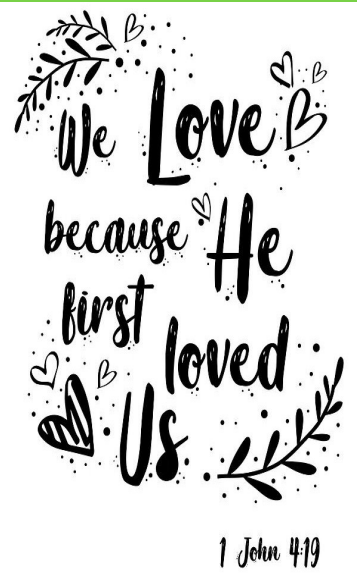 We Love
because He
first
loved
Us
1 John 4:19